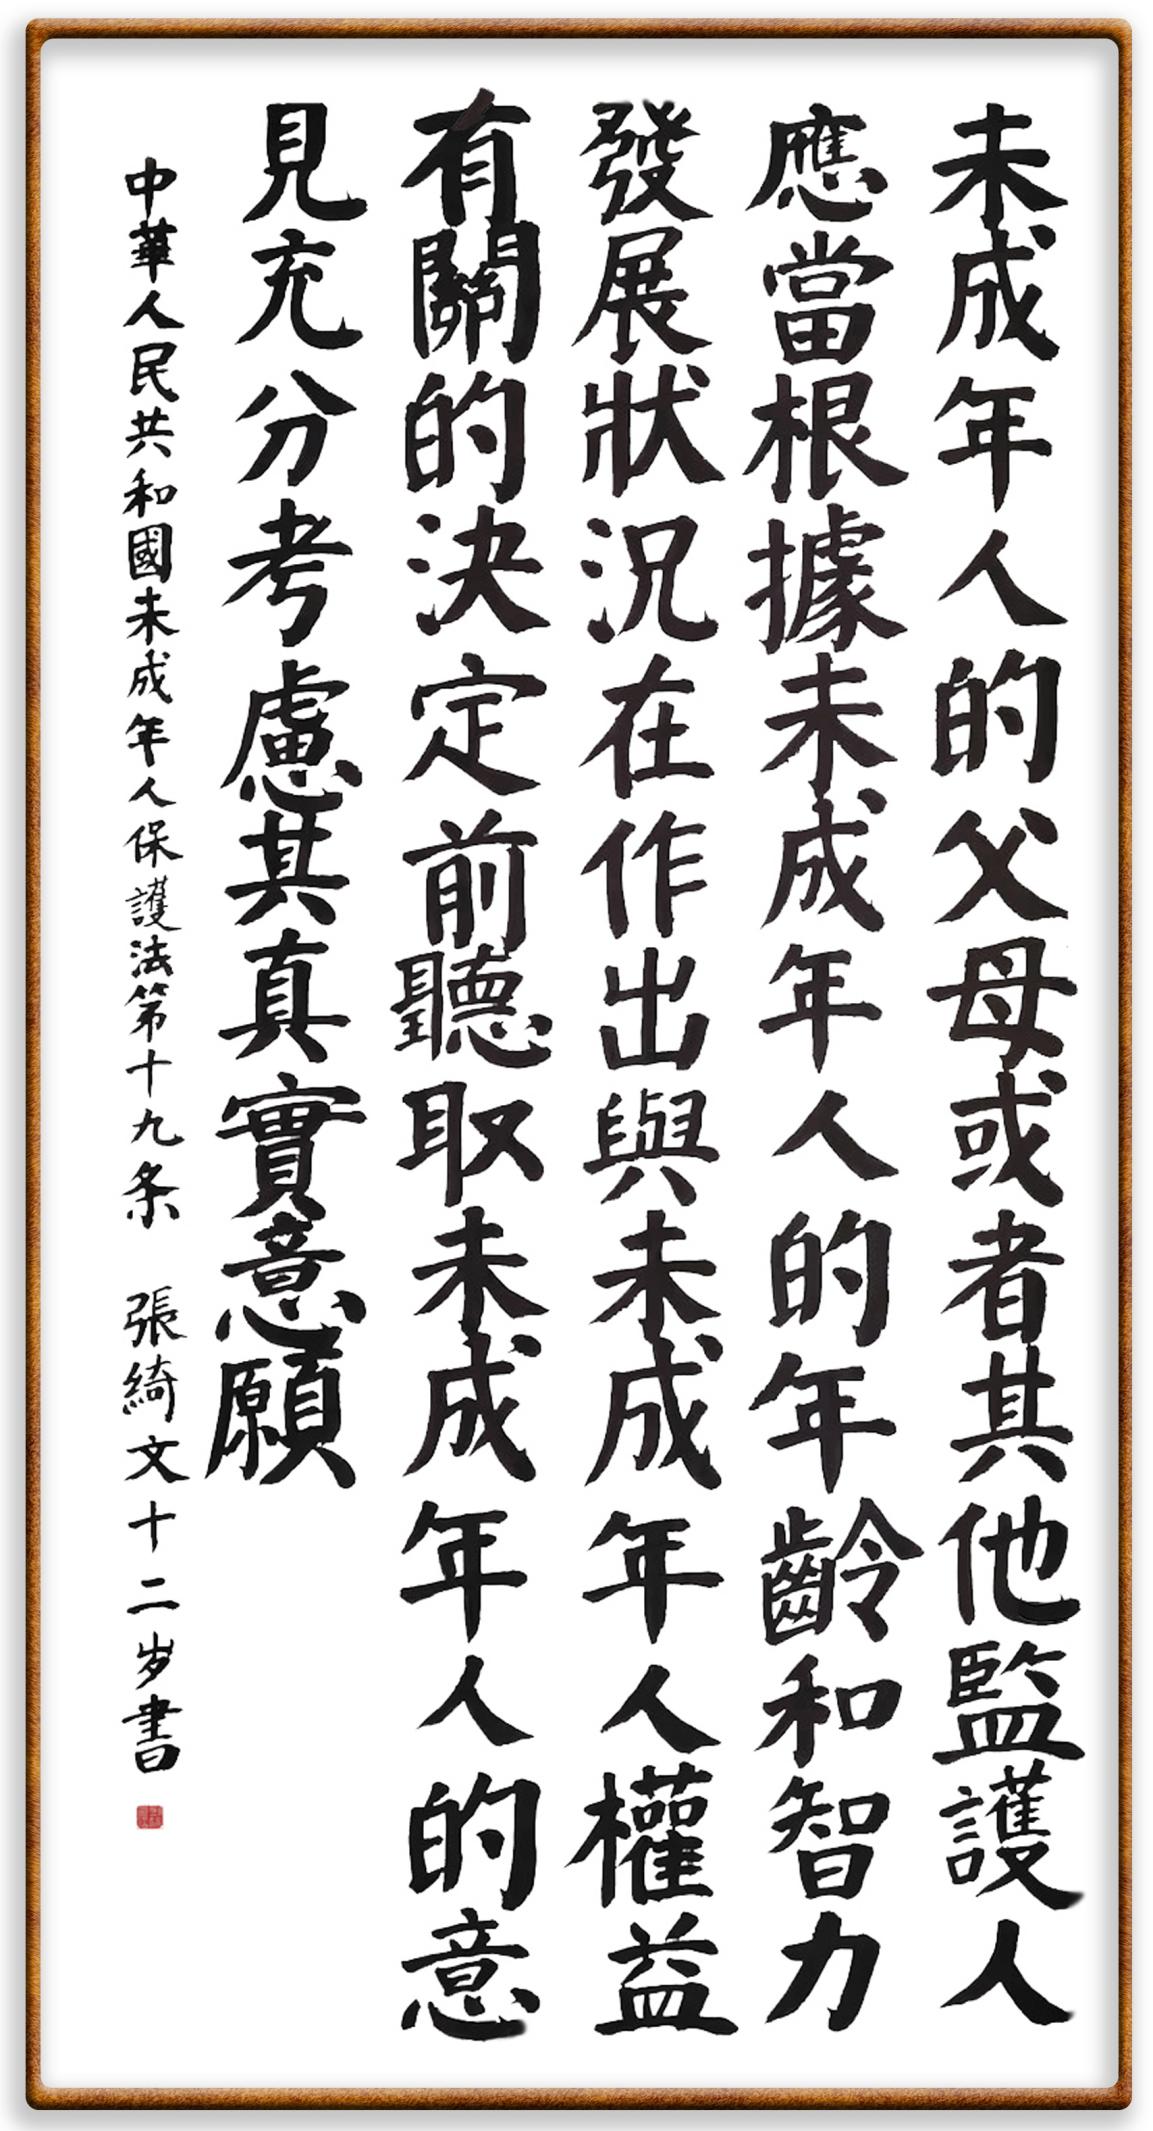 未成年人的父母或者其他監護人
應當根據未成年人的年齡和智力
發展狀況在作出與未成年人權益
有關的決定前聽取未成年人的意
見充分考慮其真實意願
中華人民共和國未成年人保護法第十九条 張綺文十二岁書